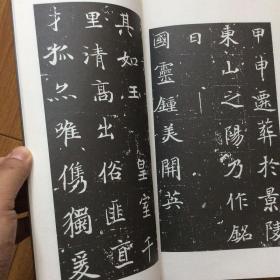 甲申遷葬於景陵
東山之陽乃作銘
曰
國靈鍾美開英
其如玉皇室千
里清高出俗匪宜
孤亦唯儁獨爰